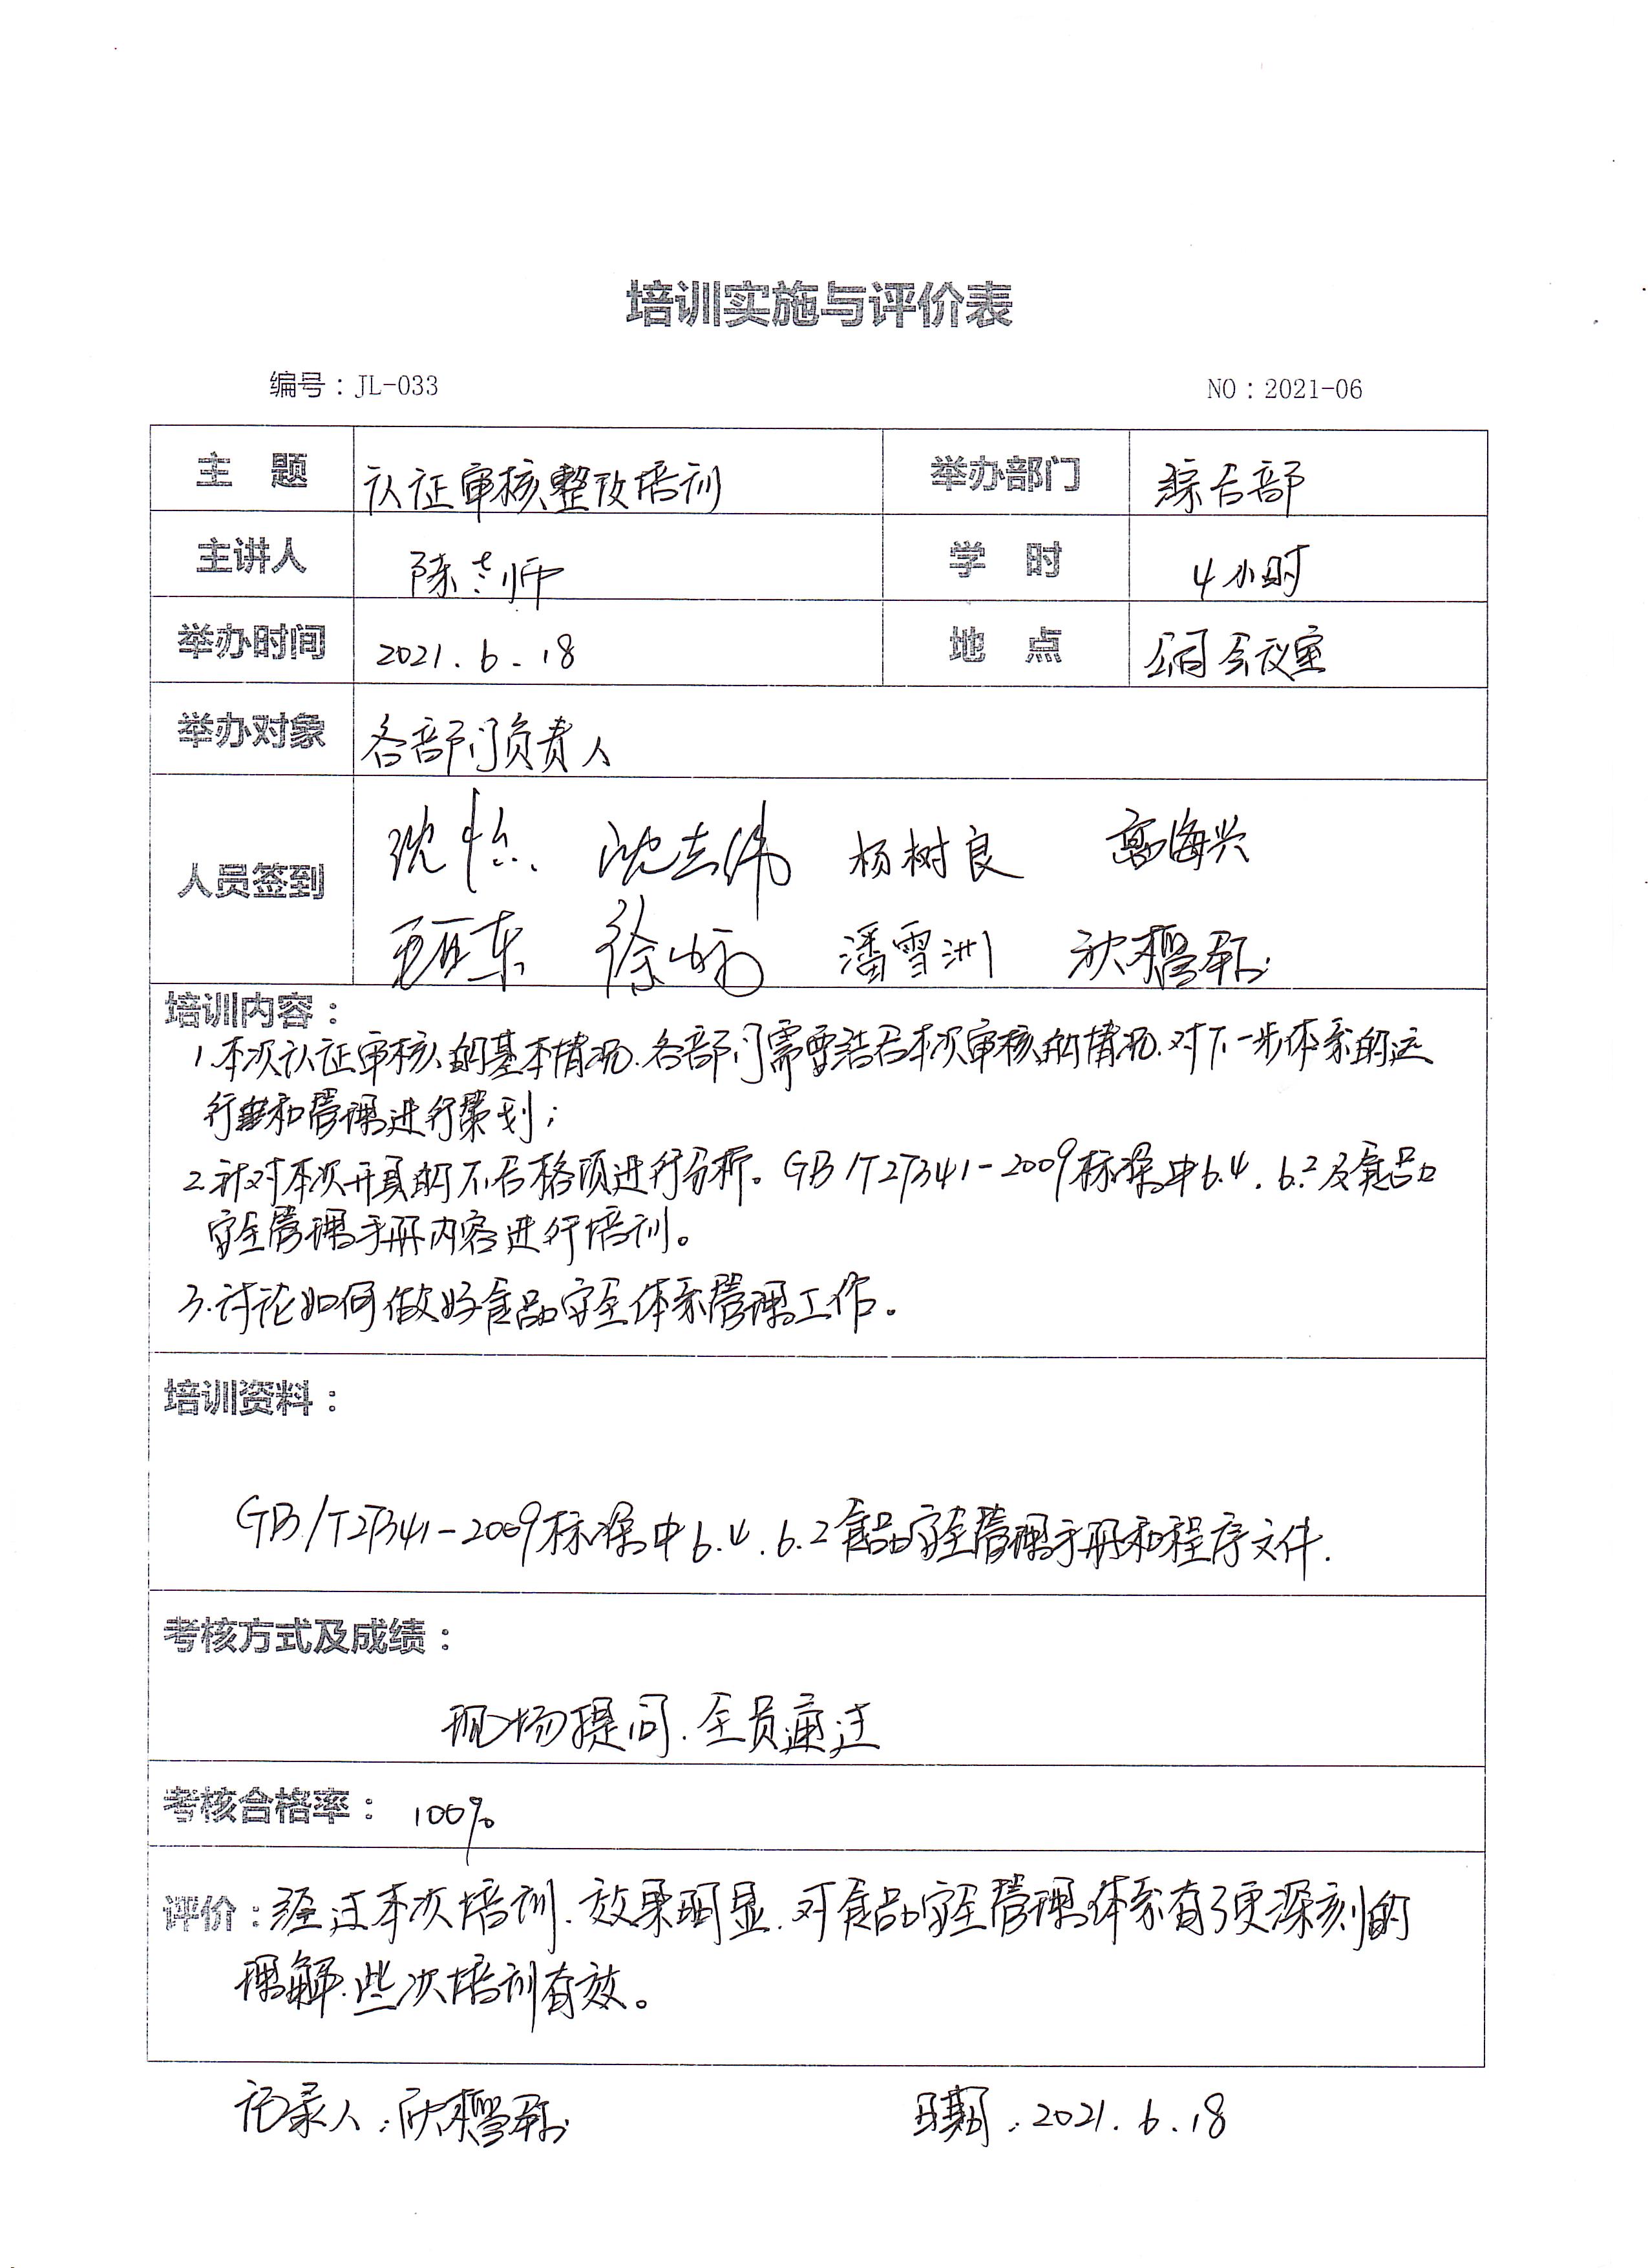 培训实施与评价表
编号：JL-033 NO：2021-06
主 题 认证审核整改培训 举办部门 综合部
主讲人 陈志师 学 时 4小时
举办时间 2021.6.18 地 点 公司会议室
举办对象 各部门负责人
人员签到 沈怡 沈志伟 杨树良 高海兴
东 徐 潘雪洲
培训内容：
1.本次认证审核的基本情况.各部门需要结合本次审核的情况.对下一步体系的运
行和管理进行策划；
2.针对本次开具的不合格项进行分析。GB/T27341-2009标准中6.4.6.2及食品
安全管理手册内容进行培训。
3.讨论如何做好食品安全体系管理工作。
培训资料：
GB/T27341-2009标准中6.4.6.2食品安全管理手册和程序文件.
考核方式及成绩：
现场提问.全员通过
考核合格率： 100%
评价：经过本次培训.效果明显.对食品安全管理体系有了更深刻的
理解.些次培训有效。
记录人： 日期：2021.6.18